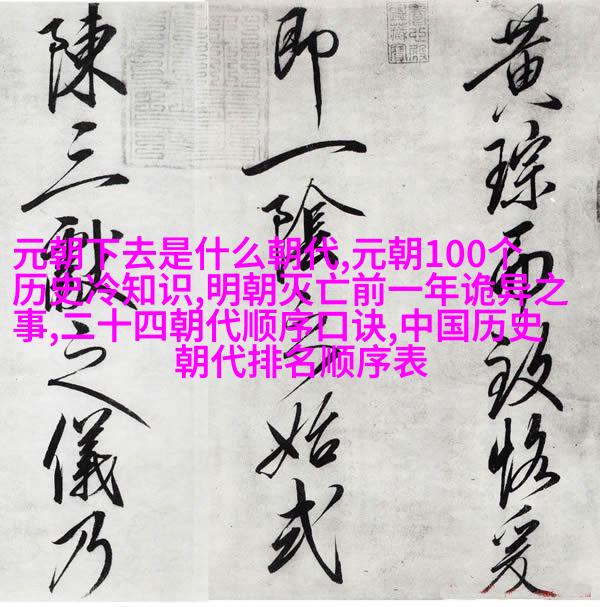 黄琮而致恪爰
即一陰之始式
陳三獻之儀乃
元朝下去是什么朝代,元朝100个
历史冷知识,明朝灭亡前一年诡异之
事,二十四朝代顺序口诀,中国历史
朝代排名顺序表